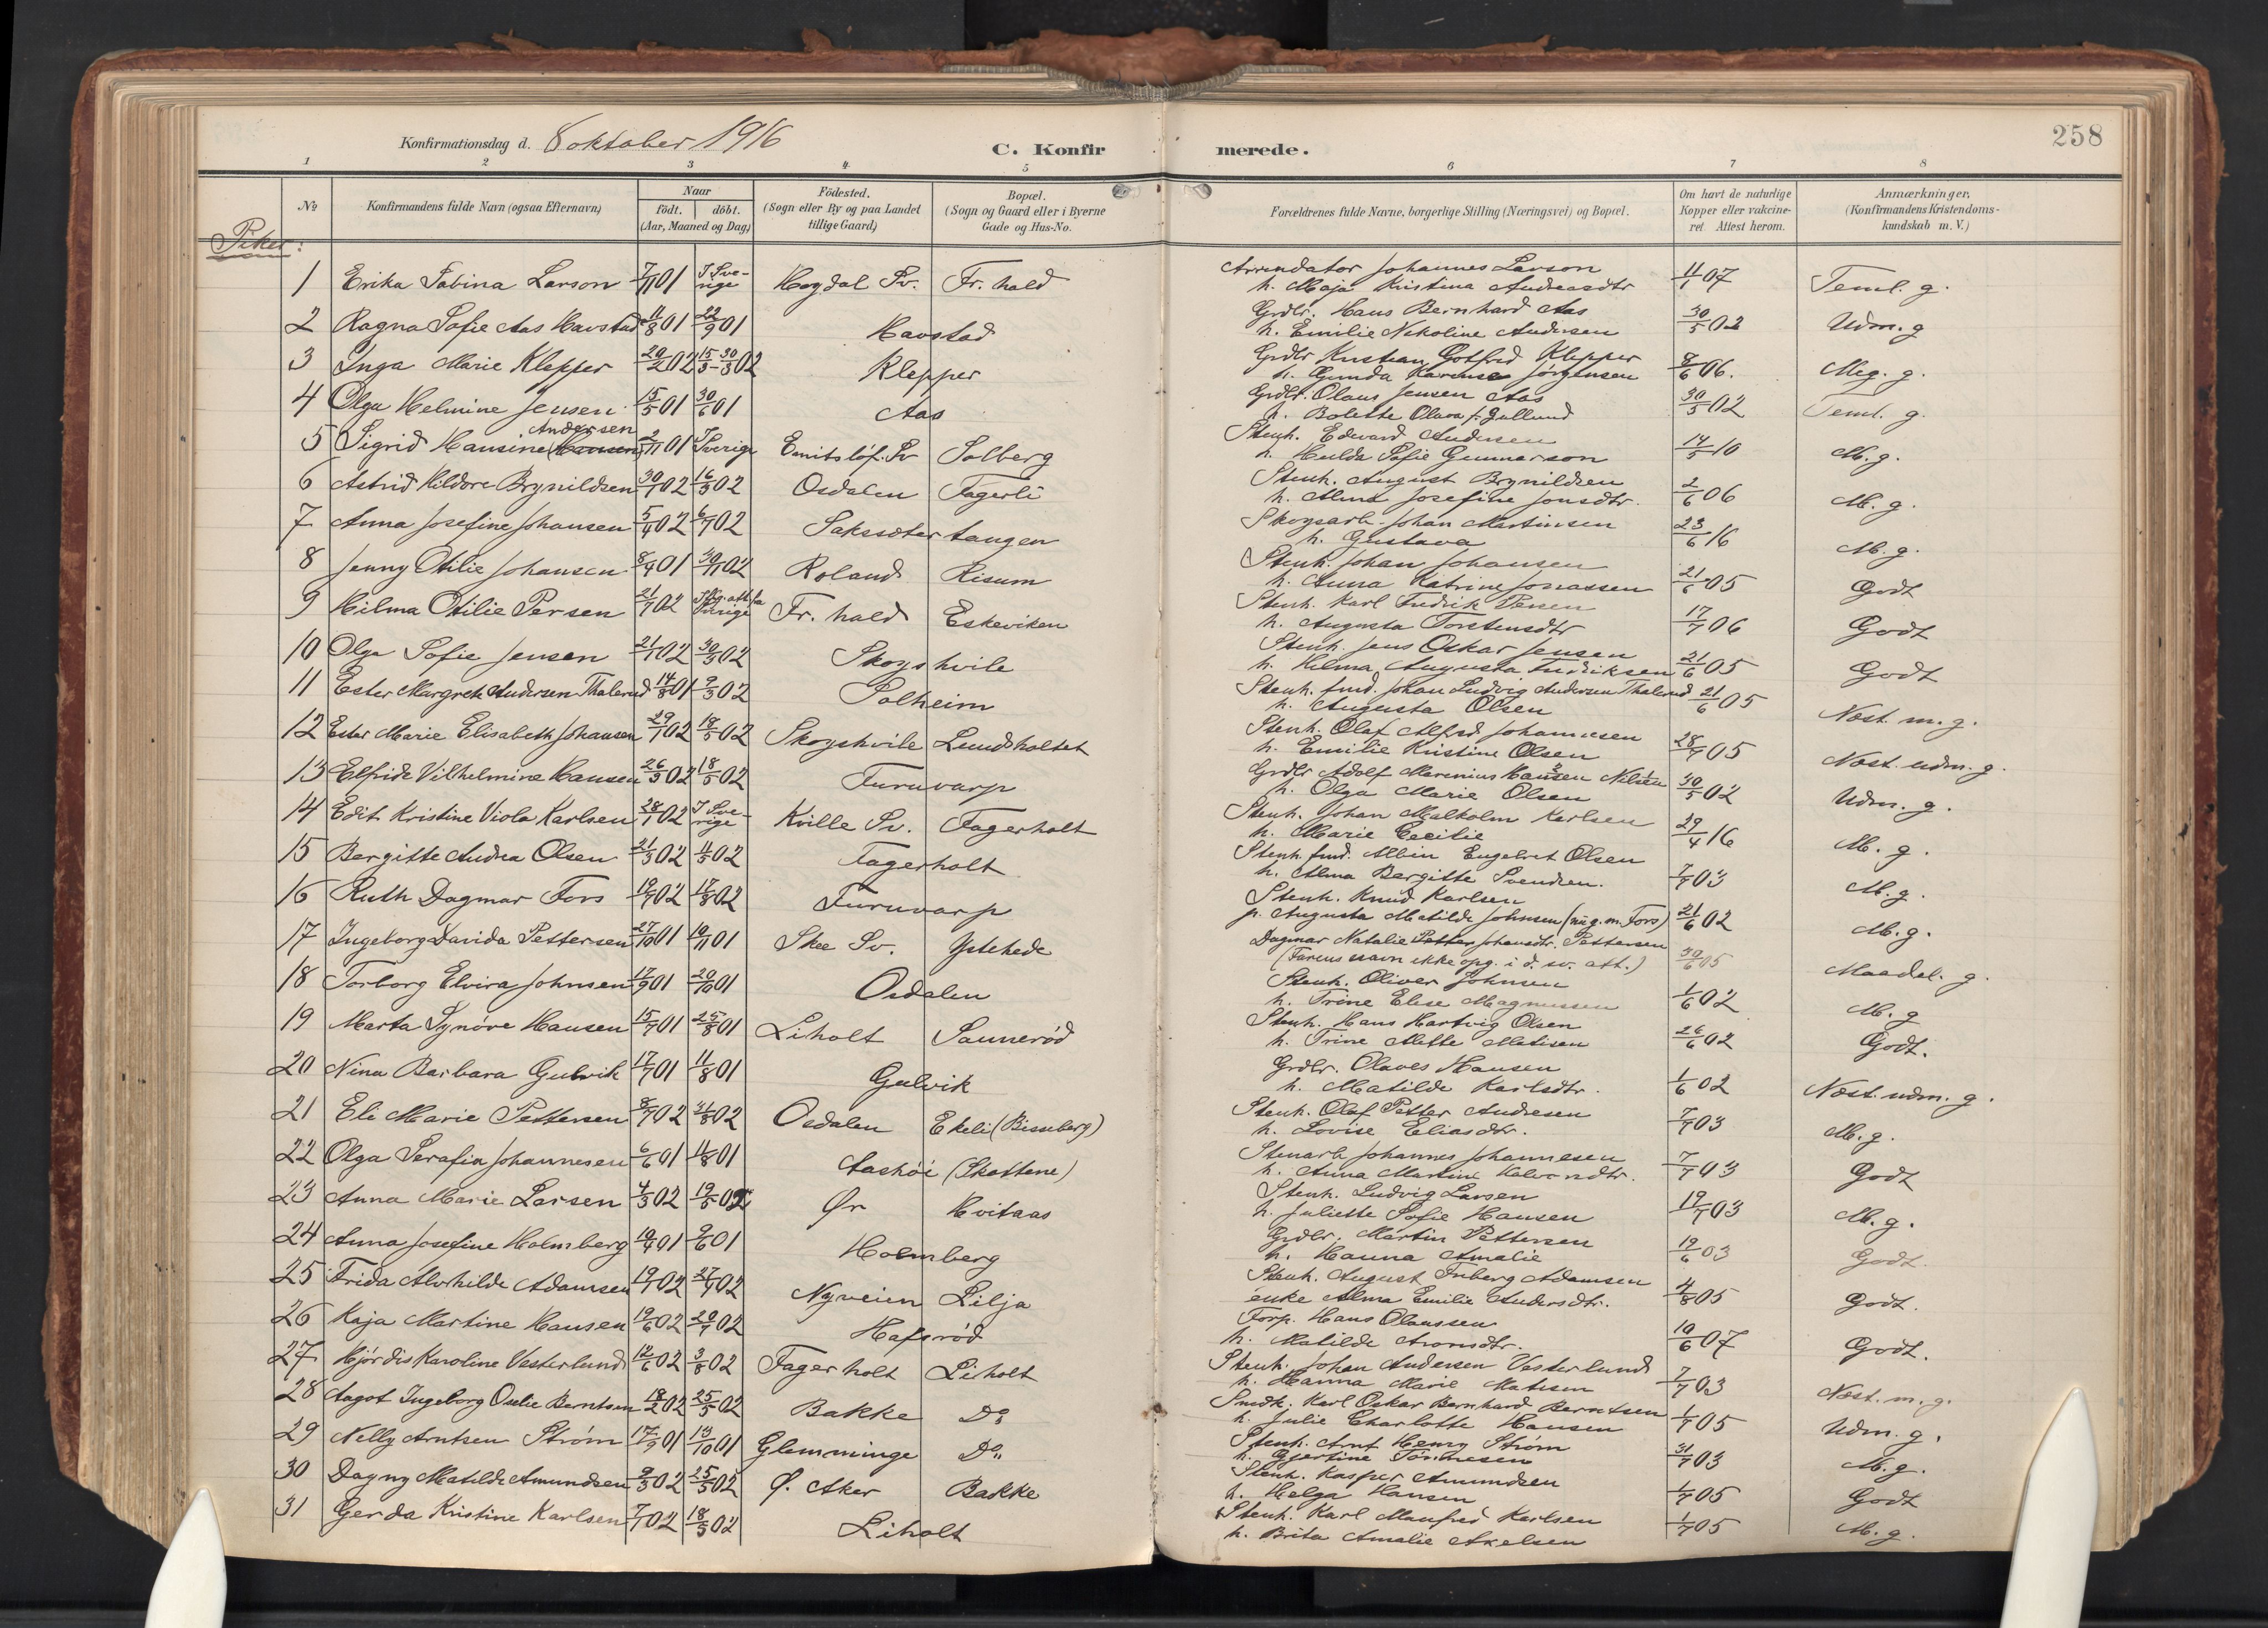 258
Konfirmationsdag d. 8 oktober 1916
C. Konfirmerede.
1 2 3 4 5 6 7 8
No
Konfirmandens fulde Navn (ogsaa Efternavn)
Naar
født. | døbt.
(Aar, Maaned og Dag)
Födested.
(Sogn eller By og paa Landet
tillige Gaard)
Bopæl.
(Sogn og Gaard eller i Byerne
Gade og Hus-No.
Forældrenes fulde Navne, borgerlige Stilling (Næringsvei) og Bopæl.
Om havt de naturlige
Kopper eller vakcine-
ret. Attest herom.
Anmærkninger,
(Konfirmandens Kristendoms-
kundskab m. V.)
Piker:
1 Erika Sabina Larson 7/11 01 I Sve-rige Hogdal Sv. Fr. hald Arrendator Johannes Larson h. Maja Kristina Andreasdtr 11/1 07 Teml. g.
2 Ragna Sofie Aas Havstad 11/8 01 22/9 01 Havstad Grdbr. Hans Bernhard Aas h. Emilie Nikoline Andersen 30/5 02 Udm. g
3 Inga Marie Klepper 20/2 02 15/3-30/3 02 Klepper Grdbr Kristian Gotfred Klepper h. Gunda Karense Jörgensen 8/6 06. Meg. g.
4 Olga Helmine Jensen 15/5 01 30/6 01 Aas Grdbr. Olaus Jensen Aas h. Bolette Olava f. Gullund 30/5 02 Teml. g.
5 Sigrid Hansine (Hansen) Andersen 2/11 01 I Sverige Solberg Stenh. Edvard Andersen h. Hulda Sofie Gunnarson 14/5 10 M. g.
6 Astrid Hildore Brynildsen 30/1 02 16/3 02 Osdalen Fagerli Stenh. August Brynildsen h. Alma Josefine Jonsdtr. 2/6 06 M. g.
7 Anna Josefine Johansen 5/4 02 6/7 02 Saksæter tangen Skogsarb. Johan Martinsen h. Gustava 23/6 16 M. g.
8 Jenny Otilie Johansen 8/4 01 30/11 02 Roland Risum Stenh. Johan Johansen h. Anna Katrine Jonassen 21/6 05 Godt
9 Hilma Otilie Persen 21/7 02 Fr. hald Eskeviken Stenh. Karl Fredrik Persen h. Augusta Torstensdtr 17/7 06 Godt
10 Olga Sofie Jensen 21/1 02 30/3 02 Skogshvile Stenh. Jens Oskar Jensen h. Hilma Augusta Fredriksen 21/6 05 Godt
11 Ester Margrete Andersen Thalerud 14/8 01 9/3 02 Solheim Stenh. fmd. Johan Ludvig Andersen Thalerud h. Augusta Olsen 21/6 05 Næst. m. g.
12 Ester Marie Elisabeth Johansen 29/1 02 18/5 02 Skogshvile Lundsholtet Stenh. Olaf Alfred Johannesen h. Emilie Kristine Olsen 28/7 05 Næst. udm. g.
13 Elfride Vilhelmine Hansen 26/3 02 18/5 02 Furuvarp Grdbr Adolf Marenius Hansen Nilsen h. Olga Marie Olsen 30/5 02 Udm. g.
14 Edit Kristine Viola Karlsen 28/1 02 I Sve-rige Kville Sv. Fagerholt Stenh. Johan Malkolm Karlsen h. Marie Cecilie 29/4 16 M. g.
15 Bergitte Andrea Olsen 21/3 02 11/5 02 Fagerholt Stenh. fmd. Albin Engebret Olsen h. Alma Bergitte Svendsen. 7/7 03 M. g.
16 Ruth Dagmar Fors 19/7 02 17/8 02 Furuvarp Stenh. Knud Karlsen p. Augusta Matilde Johnsen (nu g. m. Fors) 21/6 02 M. g.
17 Ingeborg Davida Pettersen 27/10 01 10/11 01 Skee Sv. Ystehede Dagmar Natalie Petter Johansdtr. Pettersen (Farens navn ikke opg. i d. sv. att.) 30/6 05 Maadel. g.
18 Torborg Elvira Johnsen 17/9 01 20/10 01 Osdalen Stenh. Oliver Johnsen h. Trine Elise Magnussen 1/6 02 M. g
19 Marta Synöve Hansen 15/7 01 25/8 01 Liholt Saunerød Stenh. Hans Hartvig Olsen h. Trine Mette Matisen 26/6 02 Godt.
20 Nina Barbara Gulvik 17/7 01 11/8 01 Gulvik Grdbr. Olaves Hansen h. Matilde Karlsdtr. 1/6 02 Næst. udm. g.
21 Eli Marie Pettersen 8/7 02 31/8 02 Osdalen Ekeli (Bisseberg) Stenh. Olaf Petter Andresen h. Lovise Eliasdtr. 7/7 03 M. g.
22 Olga Serafia Johannesen 6/6 01 11/8 01 Aashöi (Skottene) Stenarb Johannes Johannesen h. Anna Martine Halvorsdtr. 7/7 03 Godt
23 Anna Marie Larsen 4/3 02 19/5 02 Ør Hvitaas Stenh. Ludvig Larsen h. Juliette Sofie Hansen 19/7 03 M. g.
24 Anna Josefine Holmberg 10/4 01 9/6 01 Holmberg Grdbr. Martin Pettersen h. Hanna Amalie 19/6 03 Godt.
25 Frida Alvhilde Adamsen 19/1 02 27/7 02 Nyveien Lilja Stenh. August Adamsen enke Alma Emilie Andersdtr. 4/8 05 Godt.
26 Kaja Martine Hansen 19/6 02 20/7 02 Hafsrød Forp. Hans Olaussen h. Matilde Aronsdtr. 10/6 07 Godt.
27 Hjördis Karoline Vesterlund 12/6 02 3/8 02 Fagerholt Liholt Stenh. Johan Andersen Vesterlund h. Hanna Marie Matisen 7/7 03 Næst. m. g.
28 Aagot Ingeborg Oselie Berntsen 18/2 02 25/5 02 Bakke Do Smdh. Karl Oskar Bernhard Berntsen h. Julie Charlotte Hansen 1/7 05 Udm. g.
29 Nelly Arntsen Strøm 17/9 01 13/10 01 Glemminge Do Stenh. Arnt Henry Strøm h. Gjertine Tönnesen 31/7 03 M. g.
30 Dagny Matilde Amundsen 9/3 02 25/5 02 Ø. Aker Bakke Stenh. Kasper Amundsen h. Helga Hansen 1/7 05 Godt
31 Gerda Kristine Karlsen 7/1 02 18/5 02 Liholt Stenh. Karl Manfred Karlsen h. Brita Amalie Axelsen 1/7 05 M. g.